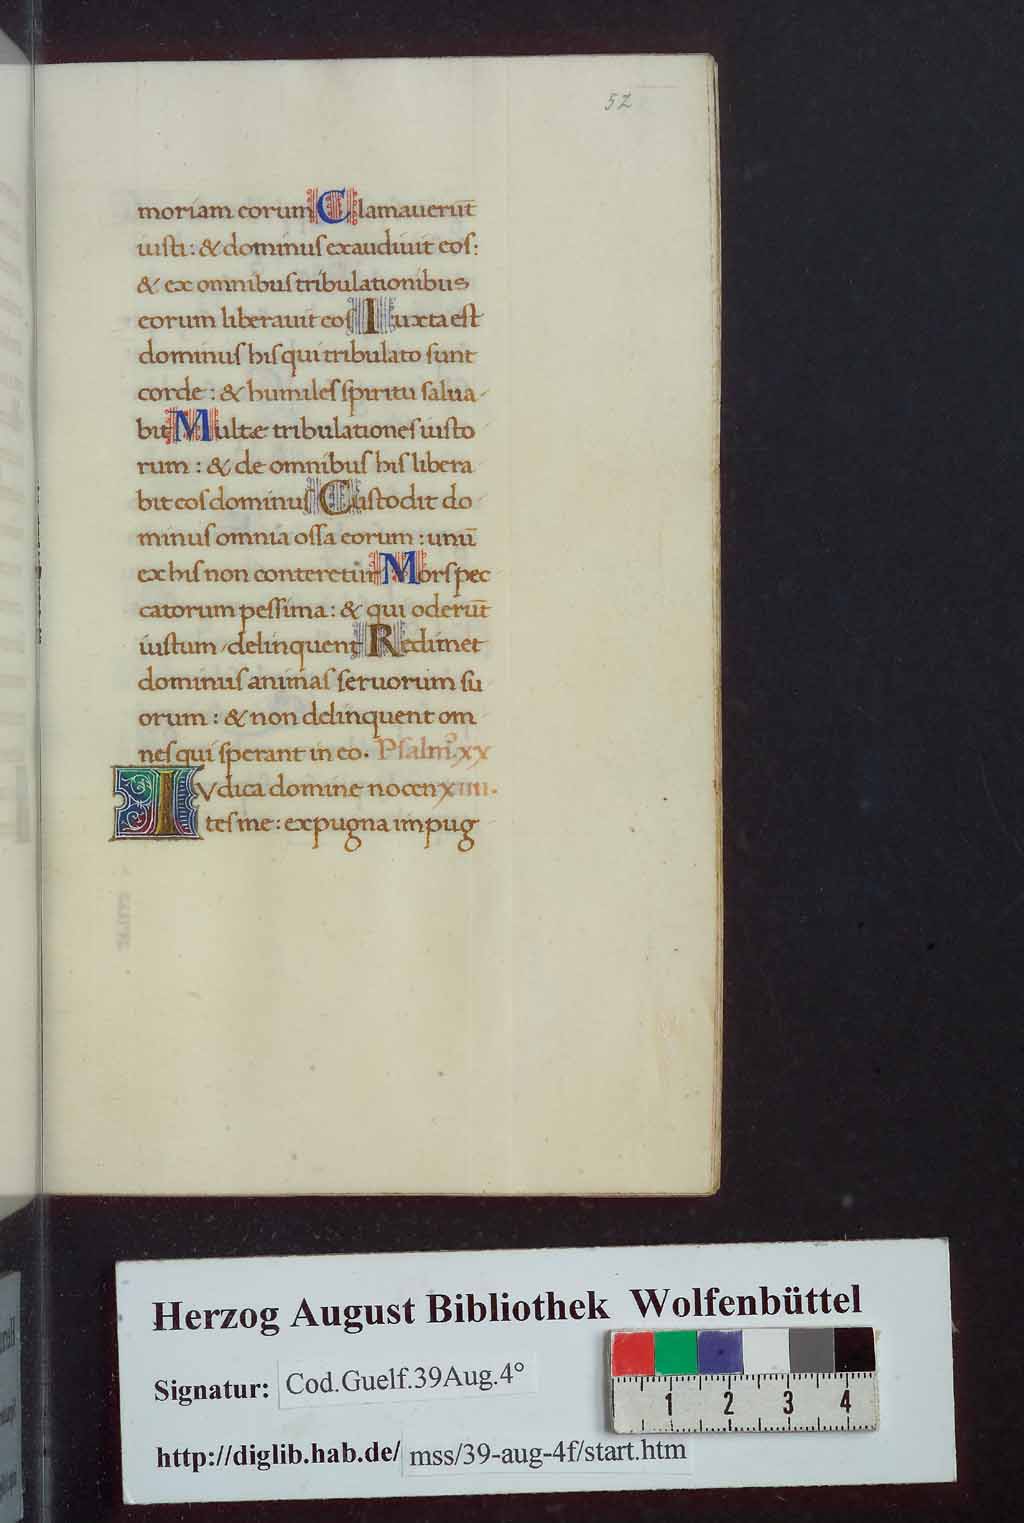 52
moriam eorum Clamauerūt
iusti: & dominus exaudiuit eos:
& ex omnibus tribulationibus
eorum liberauit eos Iuxta est
dominus his qui tribulato sunt
corde: & humiles spiritu salua-
bit Multæ tribulationes iusto
rum: & de omnibus his libera
bit eos dominus Custodit do
minus omnia ossa eorum: unū
ex his non conteretur Mors pec
catorum pessima: & qui oderūt
iustum delinquent Redimet
dominus animas seruorum su
orum: & non delinquent om
nes qui sperant in eo. Psalmº. xx
IVdica domine nocen xiiii.
tes me: expugna impug
Herzog August Bibliothek Wolfenbüttel
Signatur: Cod.Guelf.39Aug.4°
1 2 3 4
http://diglib.hab.de/ mss/39-aug-4f/start.htm